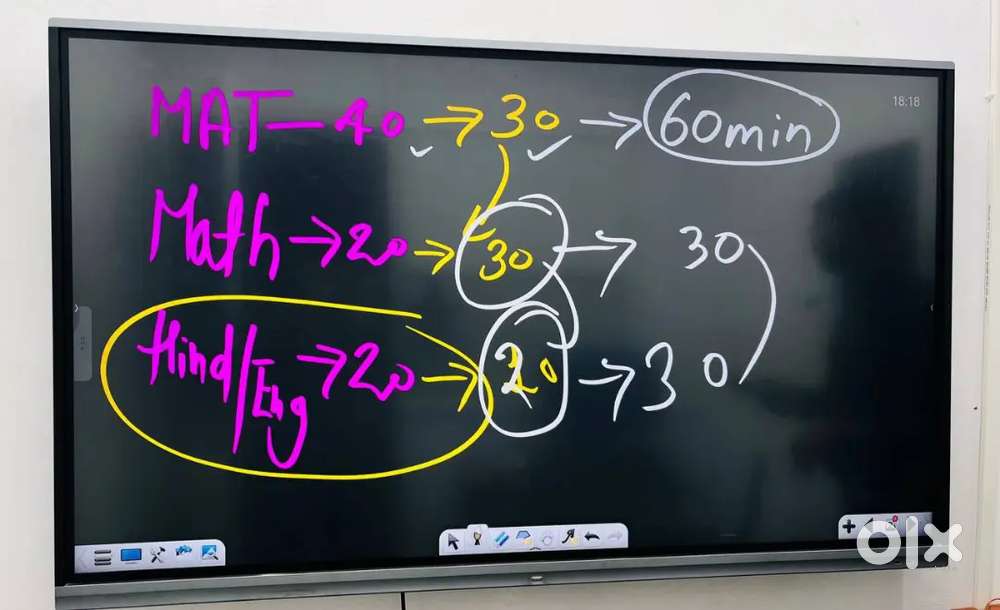 MAT — 40 → 30 → 60min
18:18
Math → 20 → 30 → 30
Hind/Eng → 20 → 20 → 30
olx